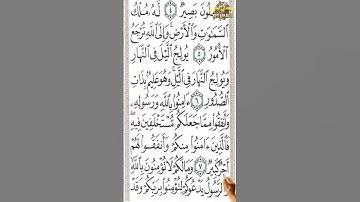 بَصِيرٌ ٤ لَّهُۥ مُلۡكُ
ٱلسَّمَٰوَٰتِ وَٱلۡأَرۡضِۚ وَإِلَى ٱللَّهِ تُرۡجَعُ
ٱلۡأُمُورُ ٥ يُولِجُ ٱلَّيۡلَ فِي ٱلنَّهَارِ
وَيُولِجُ ٱلنَّهَارَ فِي ٱلَّيۡلِۚ وَهُوَ عَلِيمُۢ بِذَاتِ
ٱلصُّدُورِ ٦ ءَامِنُواْ بِٱللَّهِ وَرَسُولِهِۦ
وَأَنفِقُواْ مِمَّا جَعَلَكُم مُّسۡتَخۡلَفِينَ فِيهِۖ
فَٱلَّذِينَ ءَامَنُواْ مِنكُمۡ وَأَنفَقُواْ لَهُمۡ
أَجۡرٞ كَبِيرٞ ٧ وَمَا لَكُمۡ لَا تُؤۡمِنُونَ بِٱللَّهِ
وَٱلرَّسُولُ يَدۡعُوكُمۡ لِتُؤۡمِنُواْ بِرَبِّكُمۡ وَقَدۡ